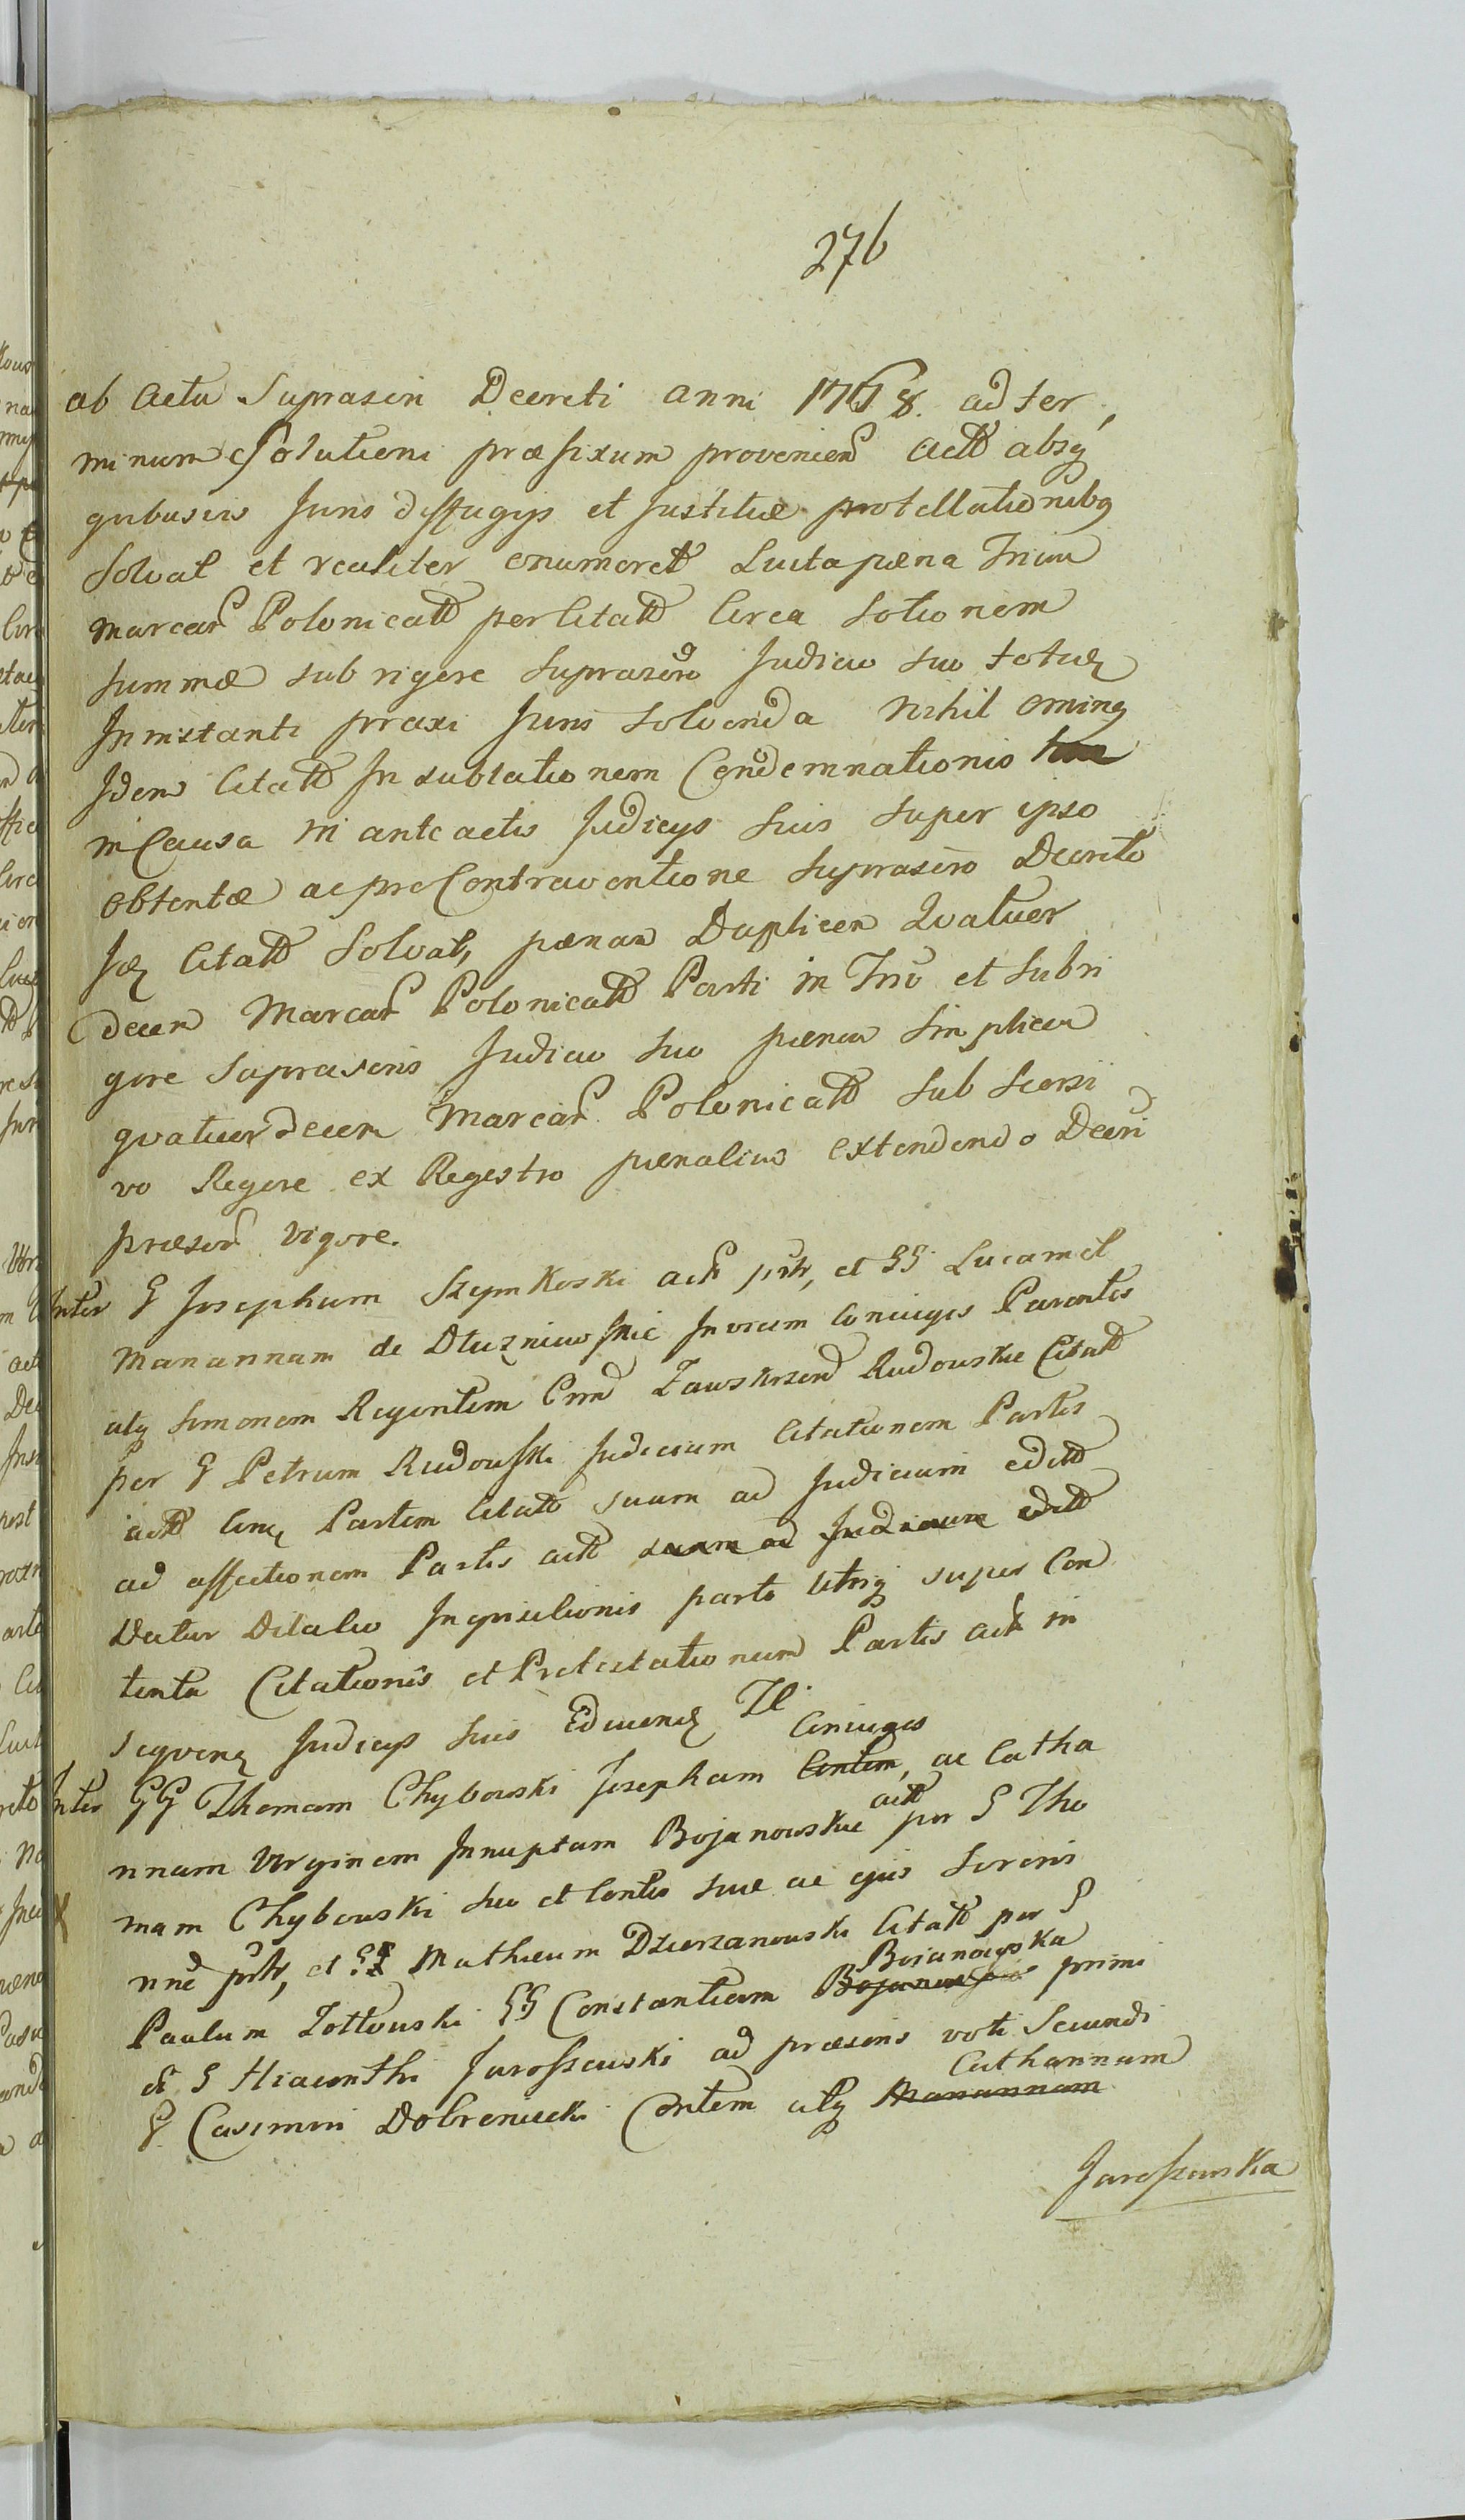 276
ab Actu Suprascri Decreti anni 1768. ad ter,
minum Solutioni præfixum provenien Actt absq
quibusvis Juris diffugijs et Justitiæ protellationibq
Solvat et realiter enumeret Luita pæna Trium
Marcar Polonicatt per Citatt Circa Sotionem
Summæ sub rigore suprascro Judicio suo totiq
In instanti praxi Juris Solvenda Nihil omninq
Idem Citatt In sublationem Condemnationis
in Causa in anteactis Judicijs suis super ipso
obtentæ ac pro Contraventione suprascro Decreto
Idq Citatt Solvat, pænam Duplicem Quatuor
decem Marcar Polonicatt Parti in Trio et sub ri
gore suprascris Judicio suo pænam simplicem
quatuordecem Marcar Polonicatt sub Scersi
vo Rigore ex Registro pænalium extendendo Decri
præsen vigore.
Inter G Josephum Szymkoski act prtr, et GG Lucam et
Mariannam de Dłuzniewskie Invicem Coniuges Parentes
atq Simonem Regentem Zawskrzen Rudowskie Citatt
per G Petrum Rudowski Judicium Citationem Partis
actt Partem Citatt suam ad Judicium editt
ad affectionem Partis actt suam ad Judicium editt
Datur Dilatio Inquisitionis parte utriq super Con
tenta Citationis et Protestationum Partis act in
sequen Judicijs suis Educen
Coniuges
Inter GG Thomam Chybowski Josepham Contem, ac Catha
actt
nnam Virginem Innuptam Bojanowskie per G Tho
mam Chybowski suo et Contis suæ ac ejus Sororis
nne prtr, et GG Mathæum Dzierzanowski Citatt per G
Bojanowska
Paulum Zottowski GG Constantiam Bojanowska primi
et G Hiacinthi Jaroszewski ad præsens voti Secundi
Catharinnam
G Casimiri Dobreniecki Contem atq Mariannam
Jaroszewska